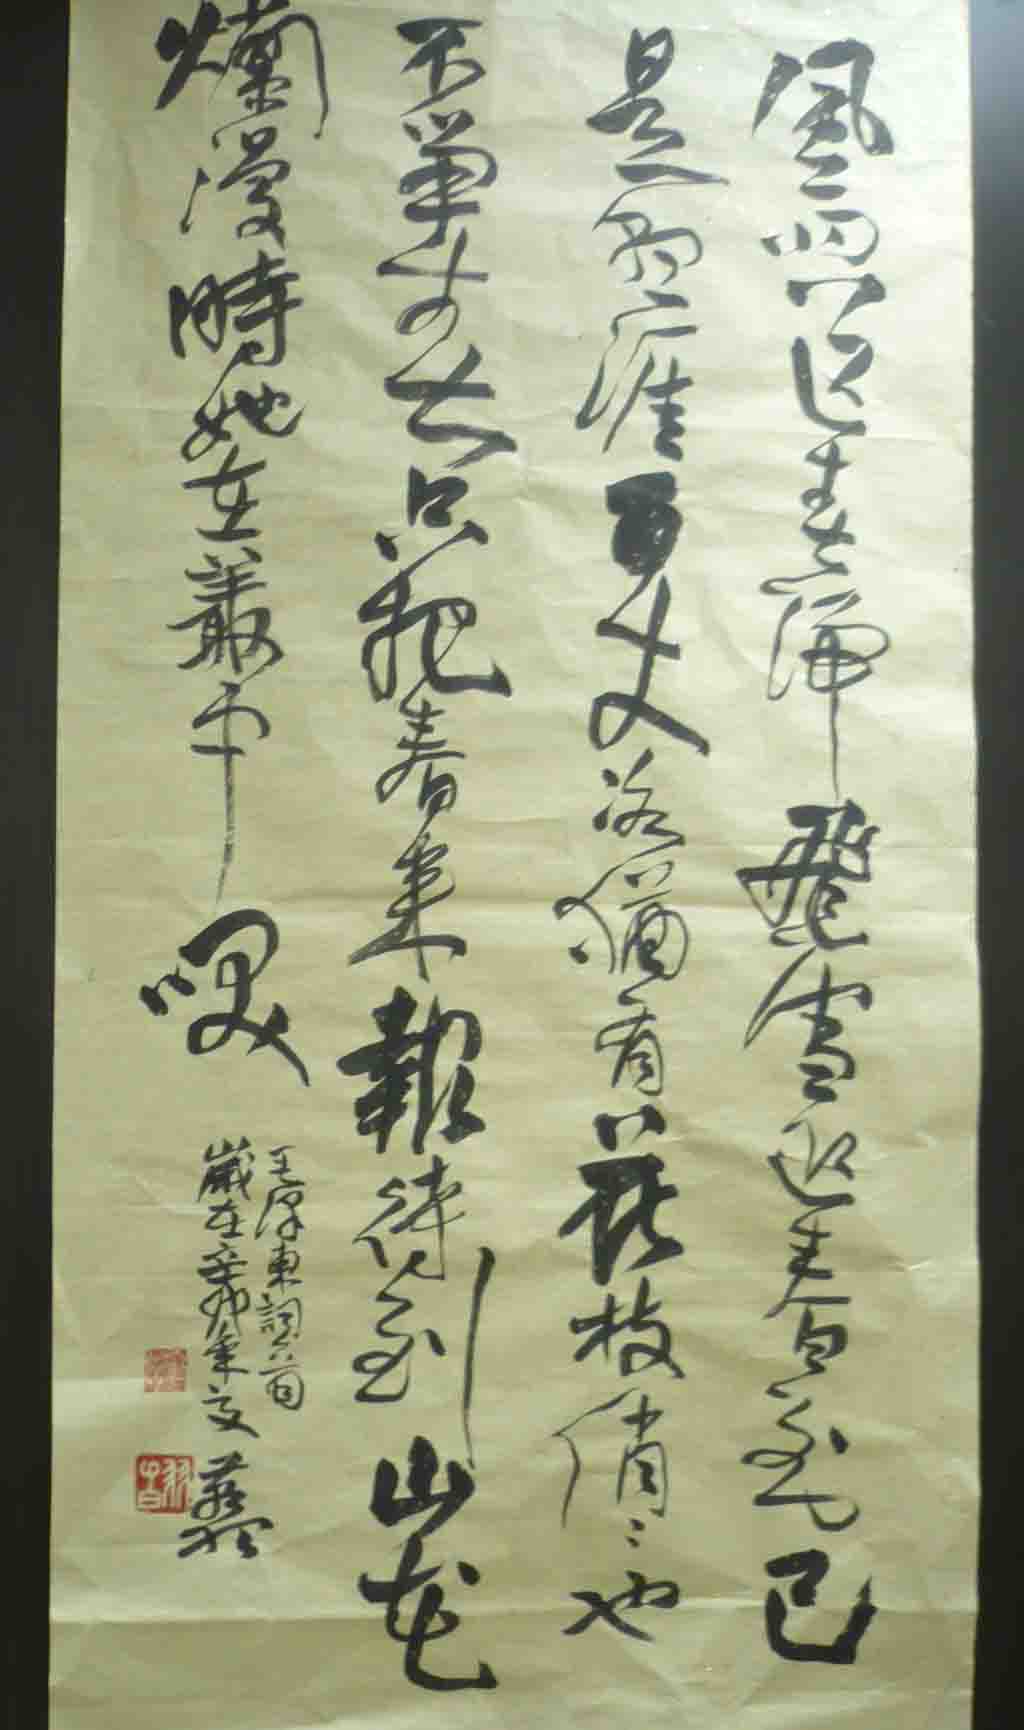 風雨送春歸飛雪迎春到已
是懸崖百丈冰猶有花枝俏々也
不爭春只把春來報待到山花
爛漫時她在叢中咲
毛澤東詞一首
歲在辛卯年